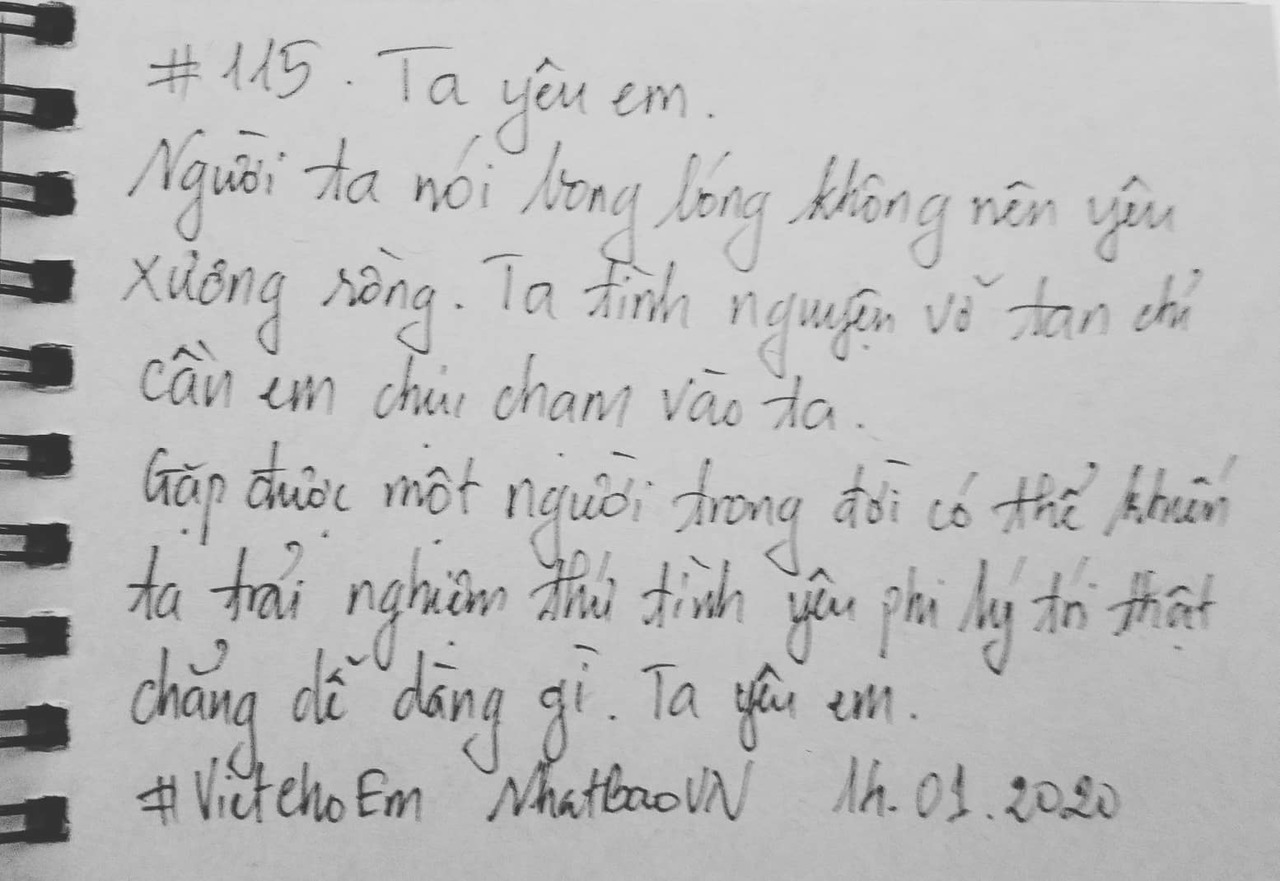 #115. Ta yêu em.
Người ta nói bong bóng không nên yêu
xương rồng. Ta tình nguyện vỡ tan chỉ
cần em chịu chạm vào ta.
Gặp được một người trong đời có thể khiến
ta trải nghiệm thứ tình yêu phi lý trí thật
chẳng dễ dàng gì. Ta yêu em.
#VietchoEm NhatbaoVN 14.01.2020